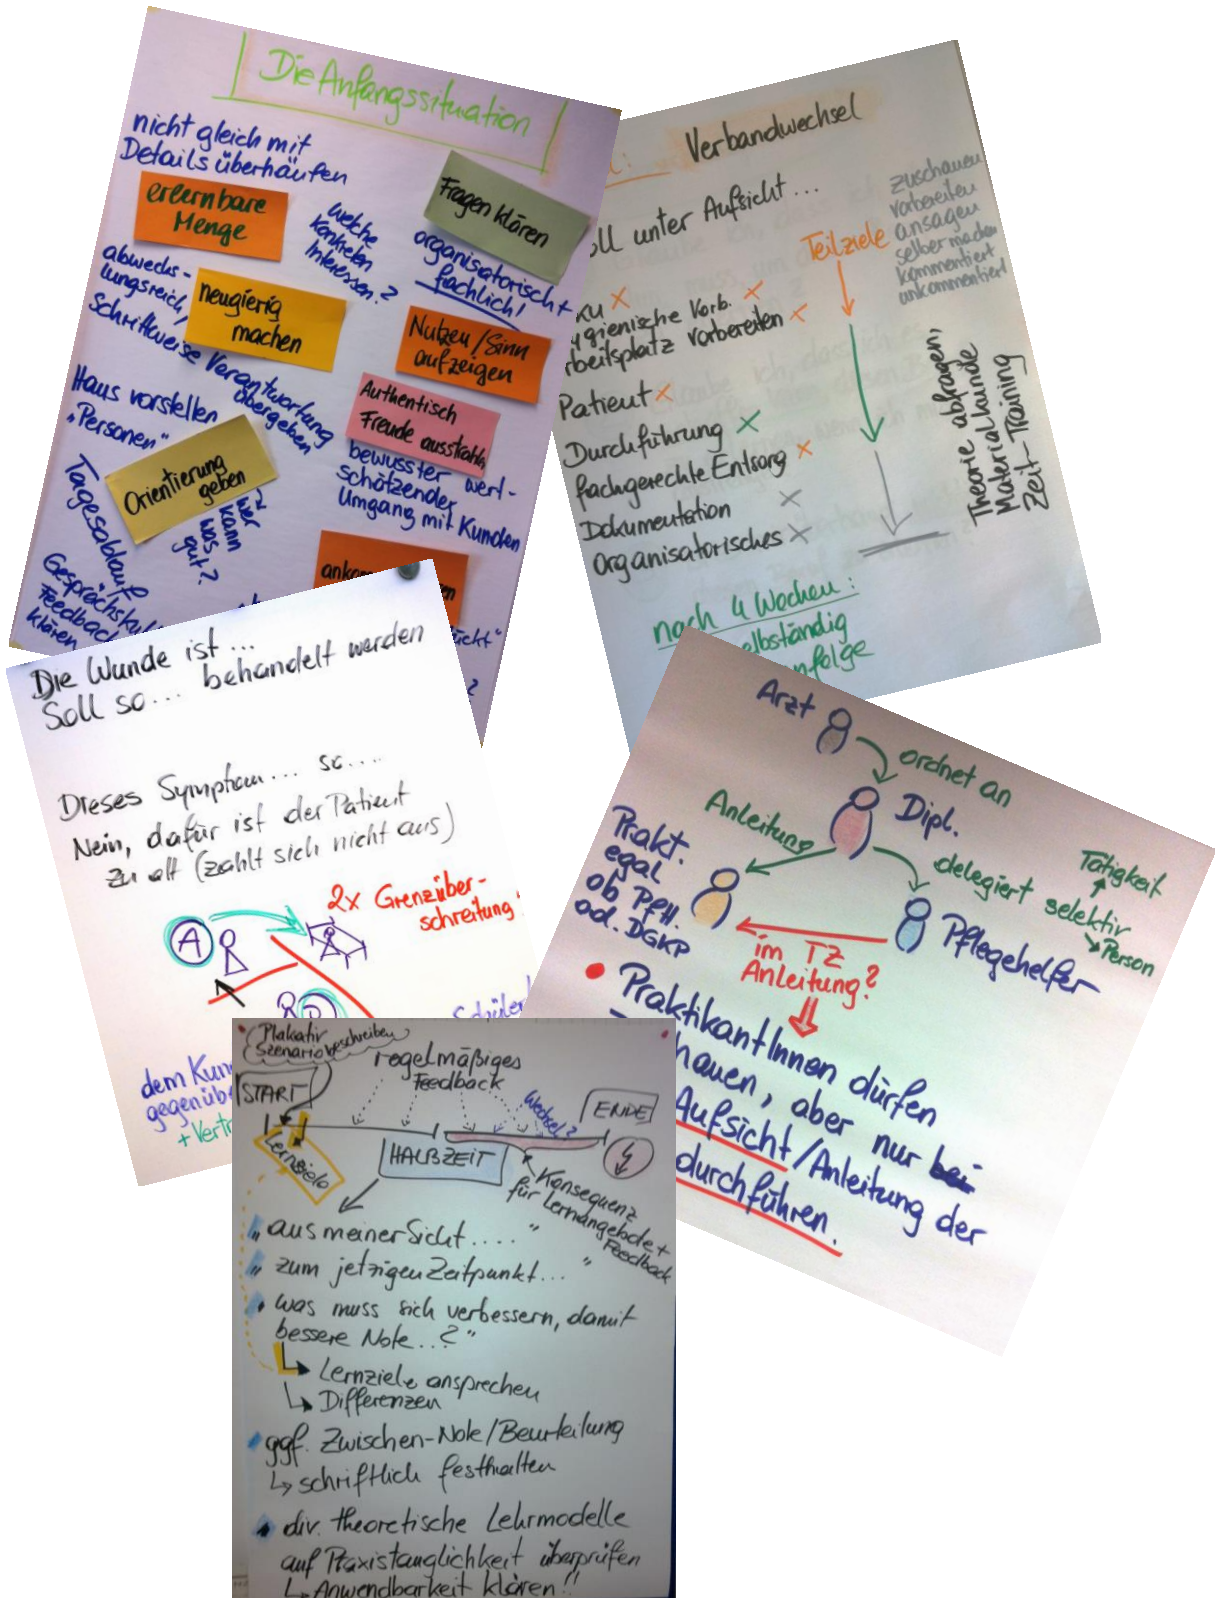 Die Anfangssituation
nicht gleich mit
Details überhäufen
erlernbare
Menge
welche
konkreten
Interessen?
Fragen klären
organisatorisch +
fachlich!
abwechs-
lungsreich,
Schrittweise Verantwortung
übergeben
neugierig
machen
Nutzen/Sinn
aufzeigen
Haus vorstellen
"Personen"
Authentisch
Freude ausstrahln
bewusster wert-
schätzender
Umgang mit Kunden
Orientierung
geben
wer
kann
was
gut?
Tagesablauf
Feedback
klären
Verbandwechsel
unter Aufsicht ...
Teilziele
zuschauen
vorbereiten
ansagen
selber machen
kommentiert
unkommentiert
Vorb.
vorbereiten
Patient
Durchführung
fachgerechte Entsorg
Dokumentation
Organisatorisches
Theorie abfragen,
Materialkunde
Zeit-Training
nach 4 Wochen:
Die Wunde ist ...
Soll so ... behandelt werden
Dieses Symptom ... so ....
Nein, dafür ist der Patient
zu alt (zahlt sich nicht aus)
2x Grenzüber-
schreitung
A
dem
Arzt
ordnet an
Dipl.
Anleitung
delegiert selektiv
Tätigkeit
Person
Prakt.
egal
ob PfH.
od. DGKP
Pflegehelfer
im TZ
Anleitung?
• PraktikantInnen dürfen
aber nur bei
Aufsicht/Anleitung der
durchführen.
Plakativ
Szenario beschreiben
regelmäßiges
Feedback
START
Wechsel?
ENDE
Lernziele
HALBZEIT
Konsequenz
für Lernangebote +
" Feedback
" aus meiner Sicht ....
" zum jetzigen Zeitpunkt... "
• was muss sich verbessern, damit
bessere Note...?"
Lernziele ansprechen
Differenzen
ggf. Zwischen-Note/Beurteilung
schriftlich festhalten
div. theoretische Lehrmodelle
auf Praxistauglichkeit überprüfen
Anwendbarkeit klären!!